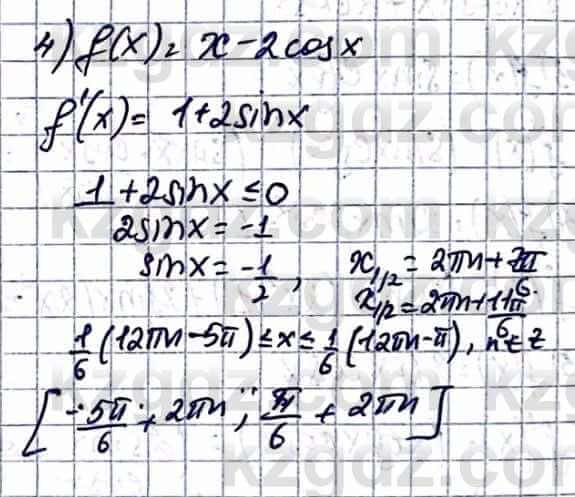 4) f(x) = x - 2cosx
f'(x) = 1+2sinx
1+2sinx ≤ 0
2sinx = -1
sinx = -1/2, x₁/₂ = 2πn + 7π/6
x₁/₂ = 2πn + 11π/6
1/6 (12πn - 5π) ≤ x ≤ 1/6 (12πn - π), n ∈ z
[-5π/6 + 2πn; π/6 + 2πn]